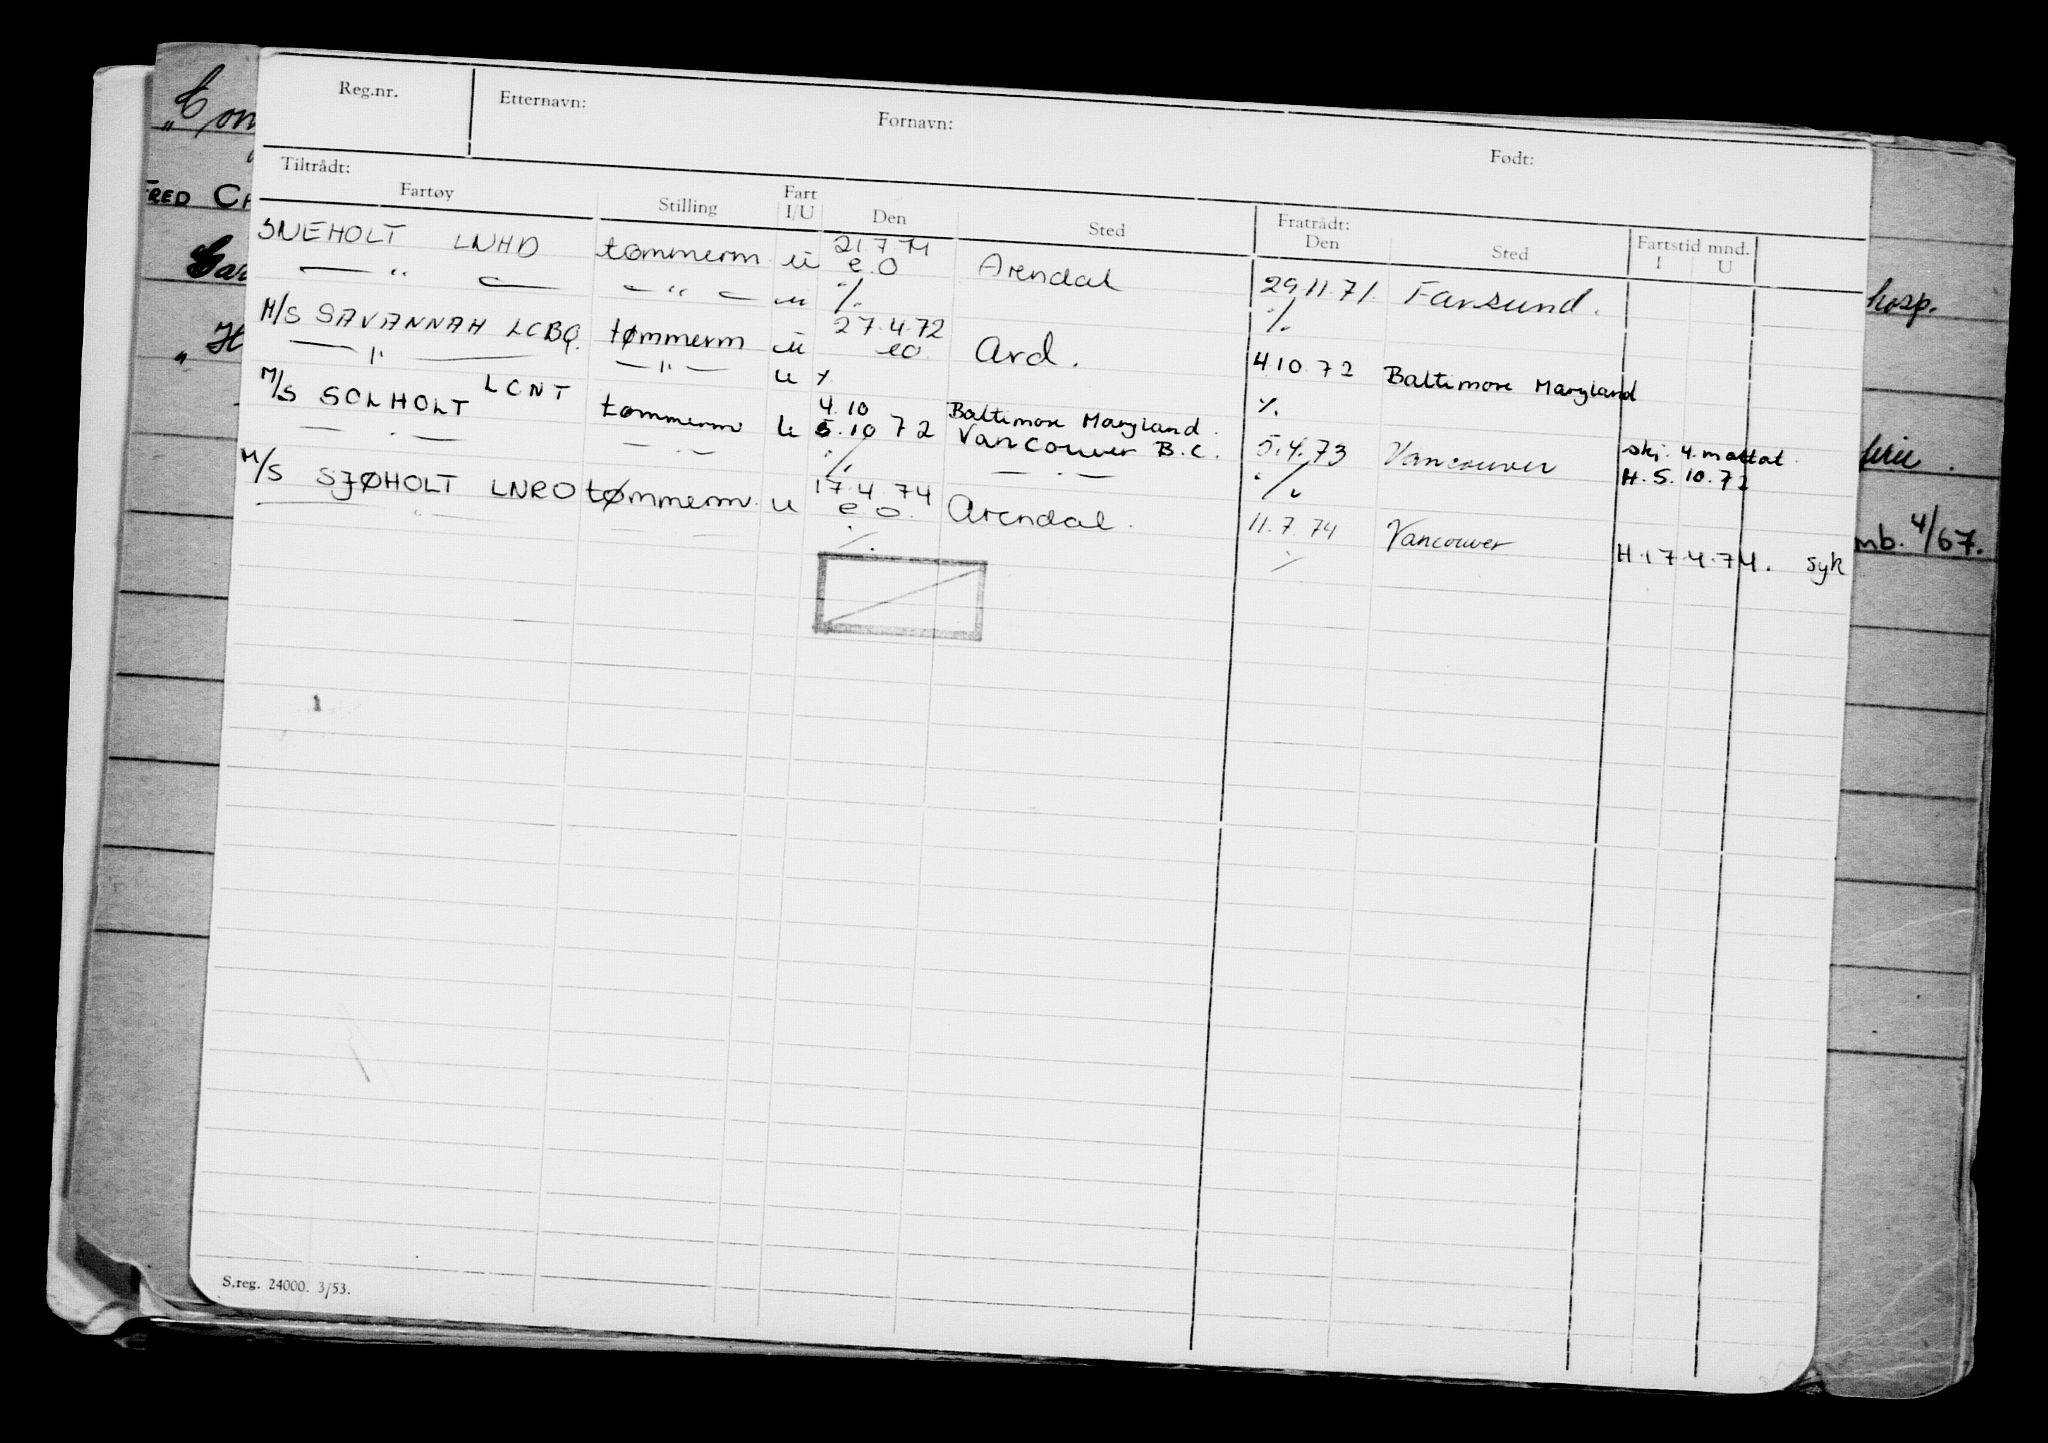 Reg.nr. Etternavn: Fornavn: Født:
Tiltrådt: Fratrådt:
Fartøy Stilling Fart I/U Den Sted Den Sted Fartstid mnd. I U
SNEHOLT LNHD tømmerm u 21.7.71 e.o Arendal 29.11.71. Farsund.
— " — — " — u ·/. ·/.
M/S SAVANNAH LCBQ. tømmerm u 27.4.72 eo Ard. 4.10.72 Baltimore Maryland
— " — — " — u ·/. ·/.
M/S SOLHOLT LCNT tømmerm u 4.10 5.10 72 Baltimore Maryland. Vancouver B.C. 5.4.73 Vancouver skj. 4. mottat. H. 5.10.72
— · — — · — ·/. — · — ·/.
M/S SJØHOLT LNRO tømmerm. u 17.4.74 e.o. Arendal. 11.7.74 Vancouver H.17.4.74. syk
— " — — — ·/. ·/.
S.reg. 24000. 3/53.
FRED
hosp.
mb. 4/67.